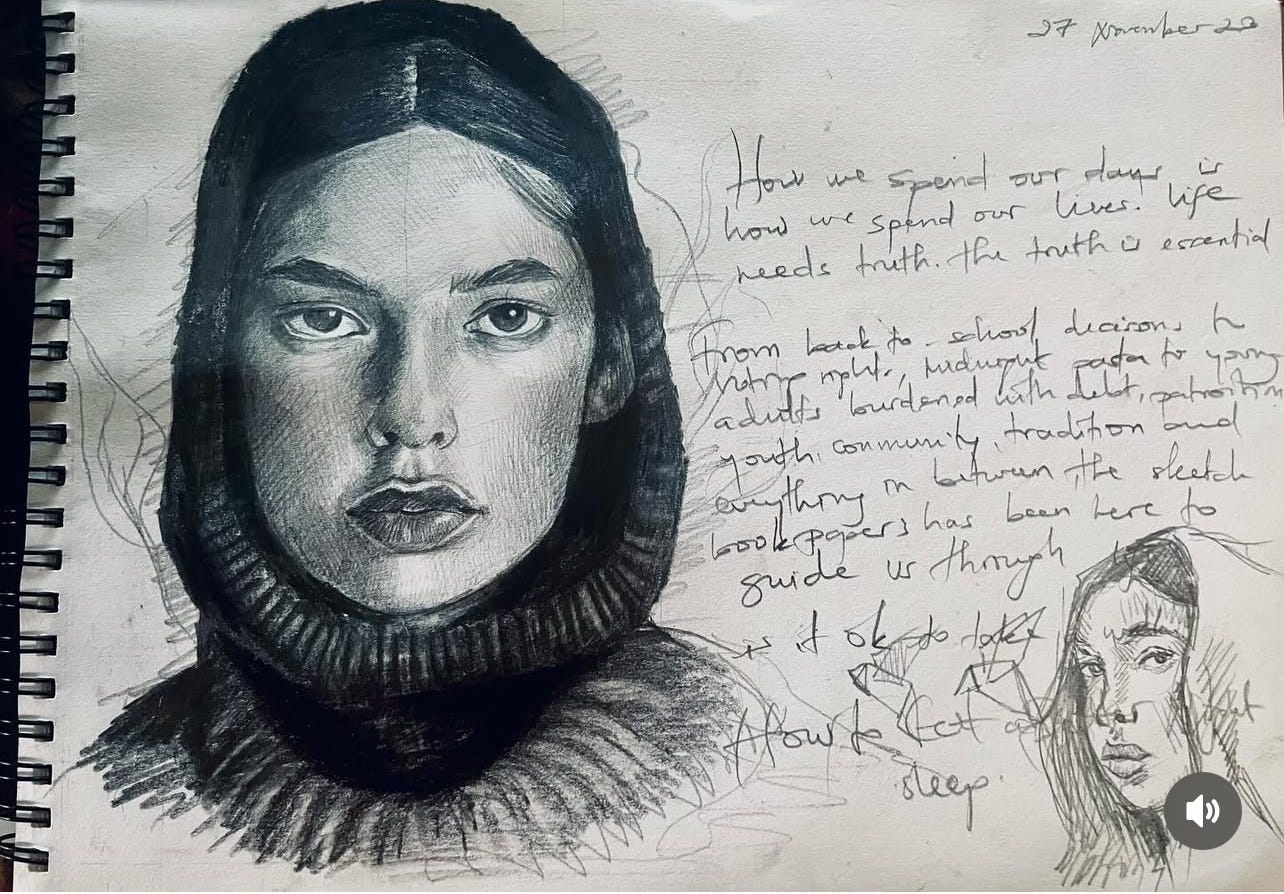 27 November 23
How we spend our days is
how we spend our lives. life
needs truth. the truth is essential
From back to school decisons to
right, midnight pasta to young
adults burdened with debt, patriotism
youth, community, tradition and
everything in between, the sketch
book papers has been here to
guide us through
is it ok to take
How to
sleep.